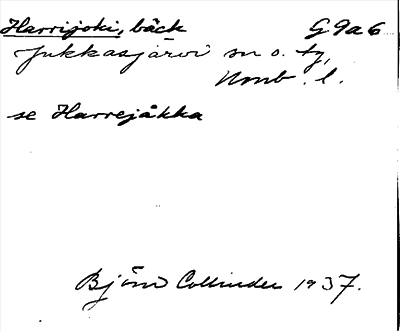 Harrijoki, bäck G 9a6
Jukkasjärvi sn o. tg,
Nonb. l.
se Harrejåkka
Björn Collinder 1937.